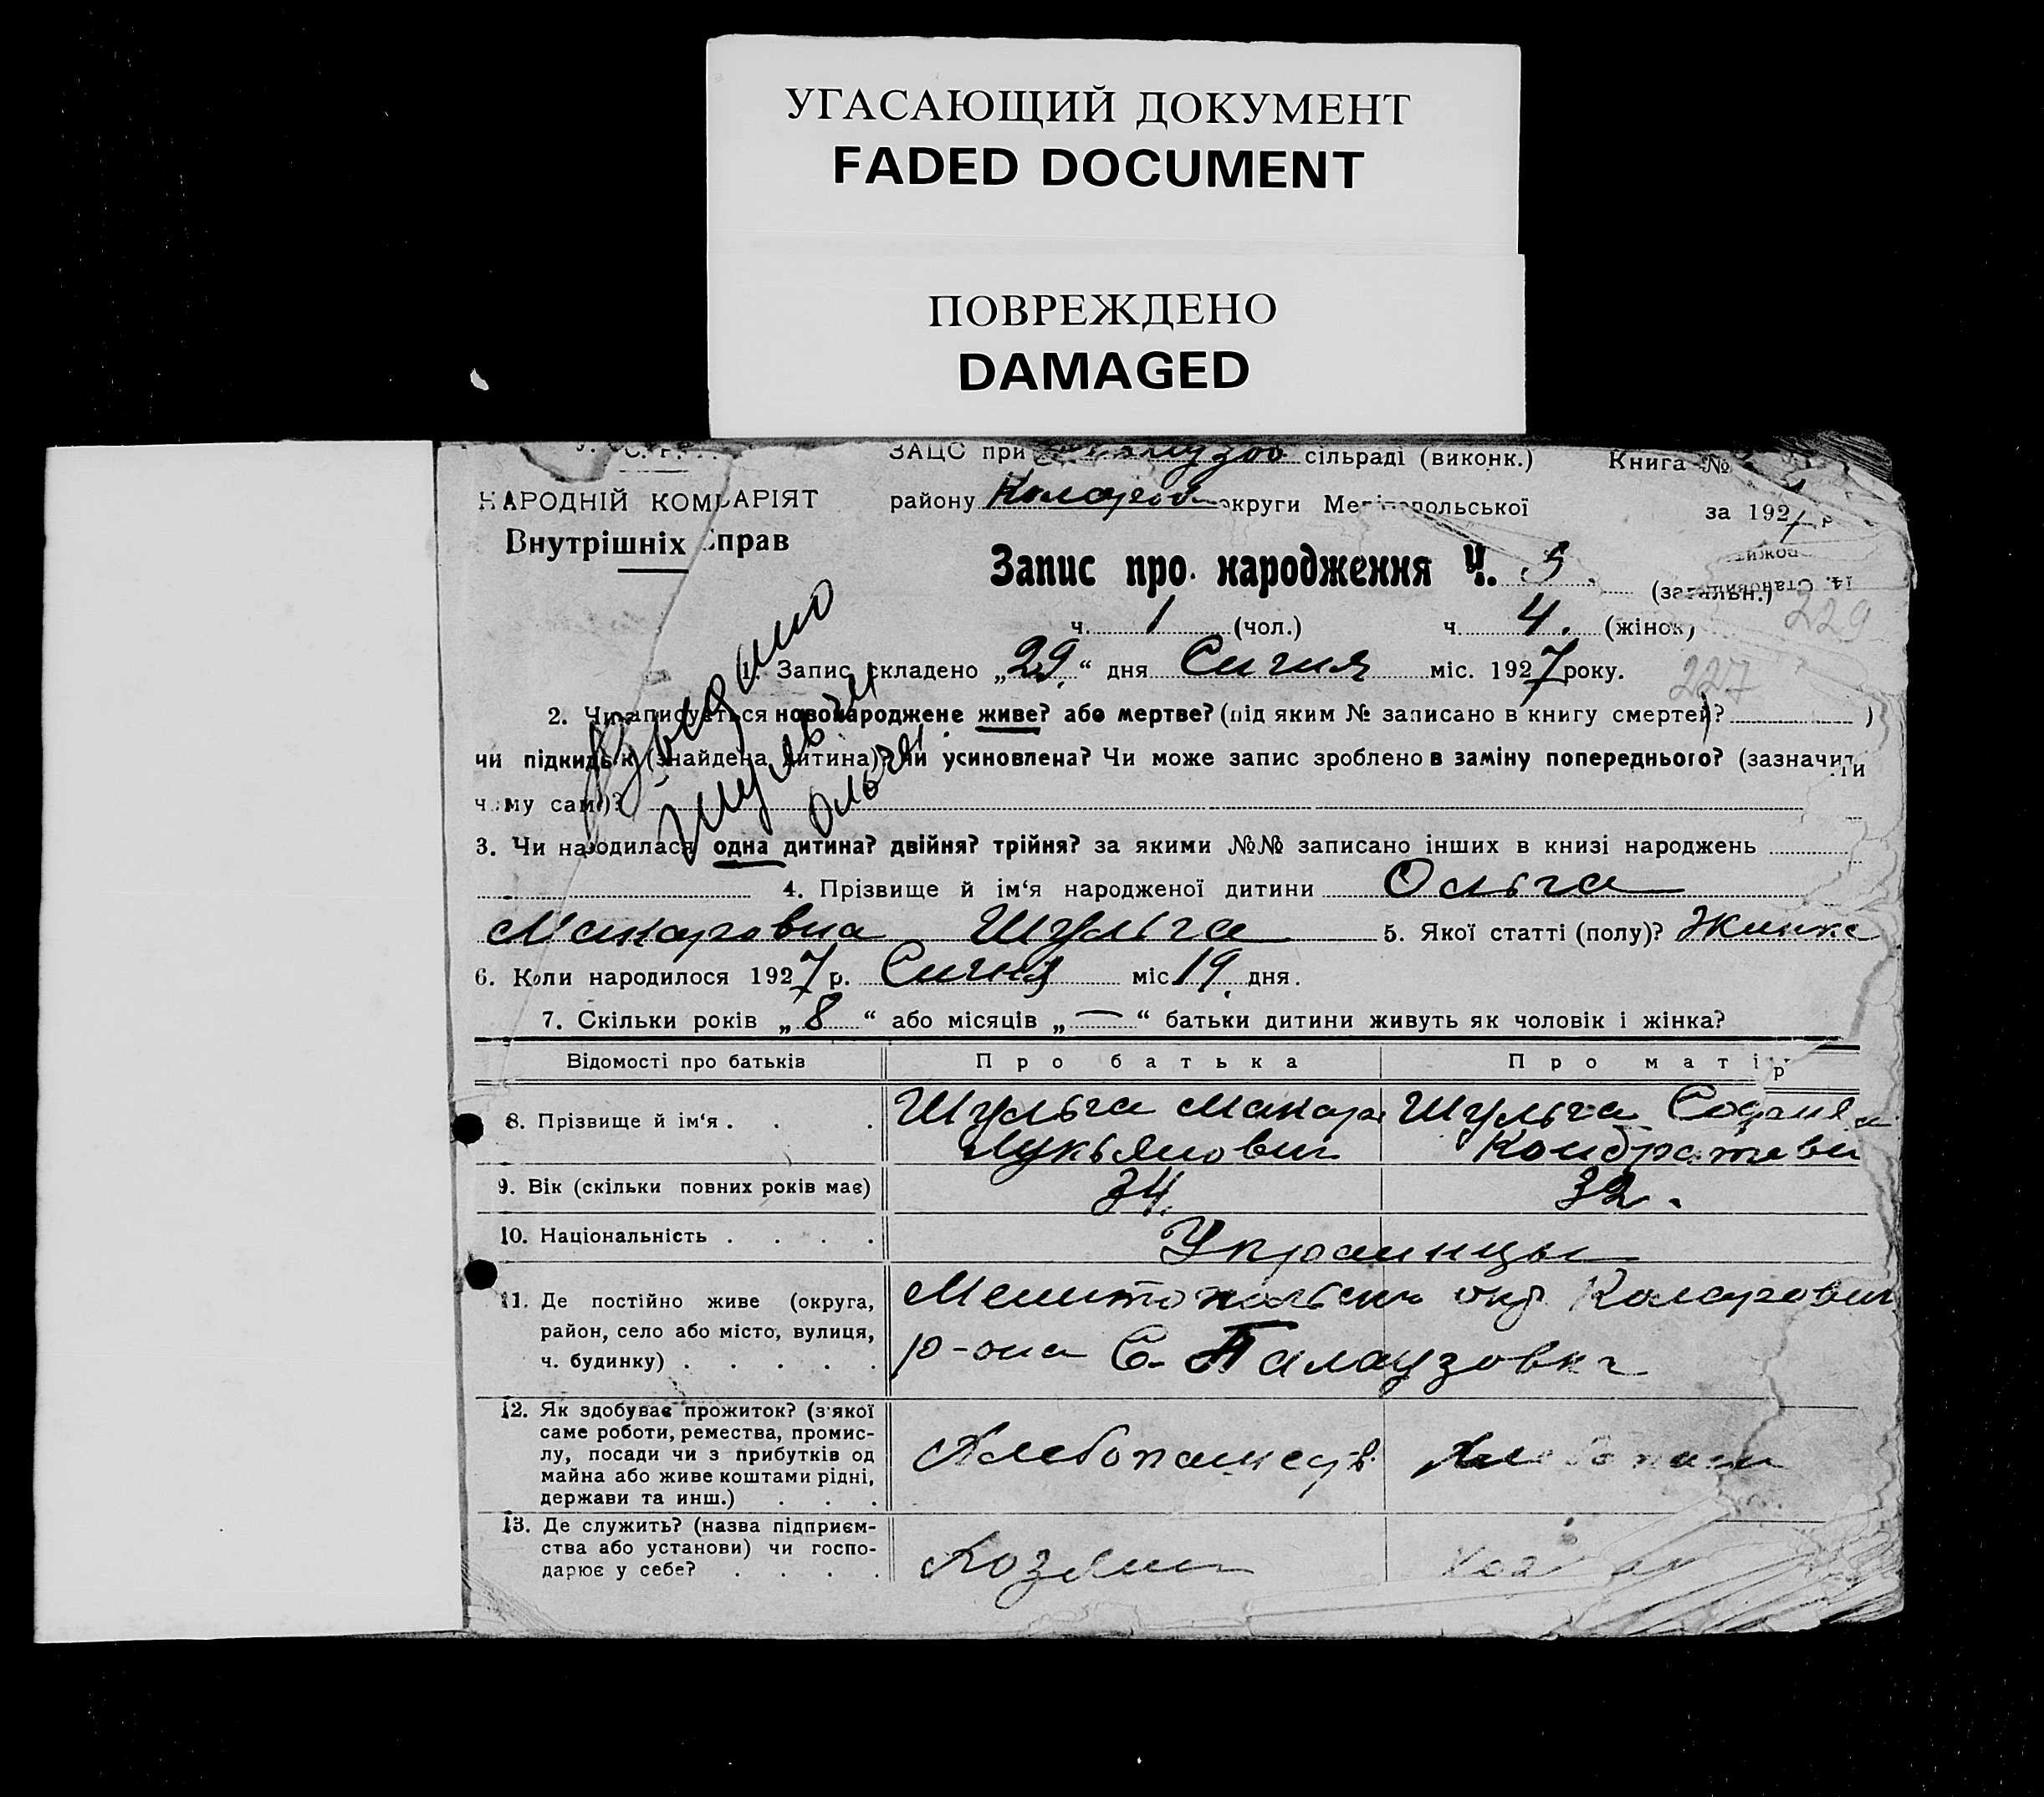 УГАСАЮЩИЙ ДОКУМЕНТ
FADED DOCUMENT
ПОВРЕЖДЕНО
DAMAGED
ЗАЦС при сільраді (виконк.) Книга №
НАРОДНІЙ КОМІСАРІЯТ району Коларов округи Мелітопольської за 1927 р
Внутрішніх Справ
Запис про народження Ч. 5. (загальн.)
229
ч. 1 (чол.) ч. 4. (жінок)
1. Запис складено „29.“ дня Сичня міс. 1927 року.
227
2. Чи записується новонароджене живе? або мертве? (під яким № записано в книгу смертей? )
чи підкидьок (знайдена дитина)? чи усиновлена? Чи може запис зроблено в заміну попереднього? (зазначити
чому саме)?
Шульзі
Ользі
3. Чи народилася одна дитина? двійня? трійня? за якими №№ записано інших в книзі народжень
4. Прізвище й ім'я народженої дитини Ольга
Макаровна Шульга 5. Якої статті (полу)? Жинка
6. Коли народилося 1927 р. Сичня міс 19. дня.
7. Скільки років „8“ або місяців „—“ батьки дитини живуть як чоловік і жінка?
Відомості про батьків Про батька Про матір
8. Прізвище й ім'я . . . Шульга Макар Шульга
Лукьянович Кондратеви
9. Вік (скільки повних років має) 34. 32.
10. Національність . . . . Украинцы
11. Де постійно живе (округа, Мелитопольск окр. Коларовск
район, село або місто, вулиця, р-она С. Палаузовка
ч. будинку) . . . . .
12. Як здобуває прожиток? (з якої
саме роботи, ремества, промис-
лу, посади чи з прибутків од Хлебопашеств
майна або живе коштами рідні,
держави та инш.) . . .
13. Де служить? (назва підприєм-
ства або установи) чи госпо- Хозяин
дарює у себе? . . . .